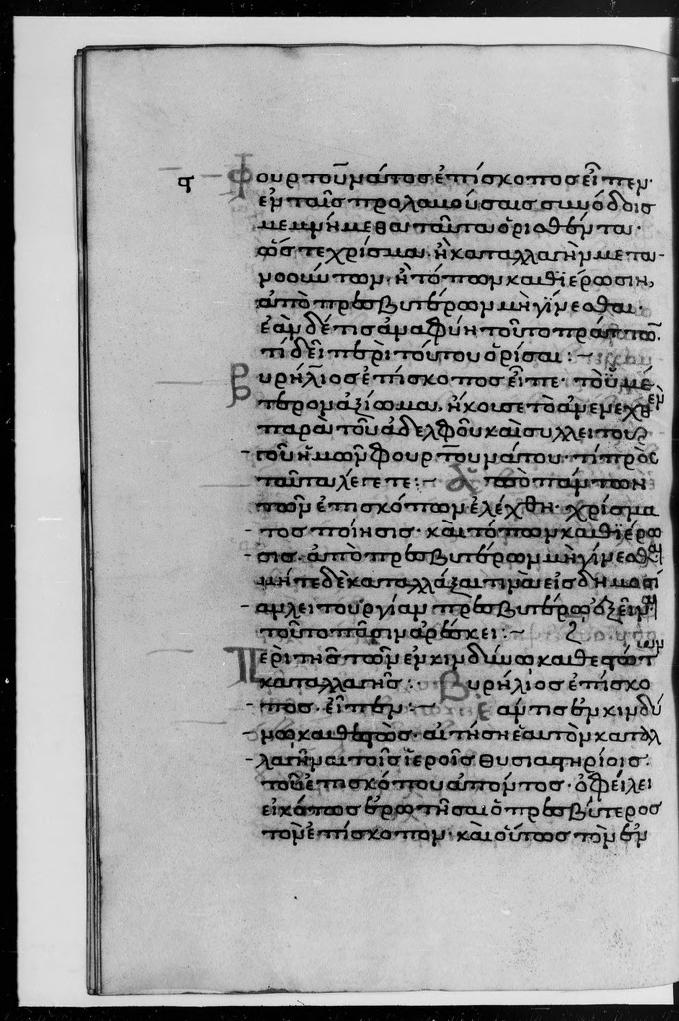 ϛ Φουρτουμάτος ἐπίσκοπος εἶπεν·
ἐν ταῖς προλαβούσαις συνόδοις
μεμνήμεθα ταῦτα ὁρισθέντα·
ὥστε χρίσμα, ἢ καταλλαγὴν μετα-
νοούντων, ἢ τόπων καθϊέρωσιν,
ἀπὸ πρεσβυτέρων μὴ γίνεσθαι·
ἐὰν δέ τις ἀναφύη τοῦτο πράττων.
τί δεῖ περὶ τούτου ὁρίσαι :~
Βυρήλϊος ἐπίσκοπος εἶπε· τοῦ ἡμε
τέρου ἀξίωμα, ἤκουσε τὸ ἀνενεχθὲν
παρὰ τοῦ ἀδελφοῦ καὶ συλλειτουρ
γοῦ ἡμῶν Φουρτουμάτου· τί πρὸς
ταῦτα λέγετε :~ Δ ἀπὸ πάντων
τῶν ἐπισκόπων ἐλέχθη· χρίσμα
τος ποίησις· καὶ τόπων καθϊέρω
σις, ἀπὸ πρεσβυτέρων μὴ γίνεσθαι
μήτε δὲ καταλλάξαι τινὰ εἰς δημοσί
αν λειτουργίαν πρεσβυτέρῳ ἐξεῖναι
τοῦτο πᾶσιν ἀρέσκει :~ ζ
Περὶ τῆς τῶν ἐν κινδύνῳ καθεστώτων
καταλλαγῆς :· Βυρήλιος ἐπίσκο
πος· εἶπεν :~ ἐάν τις ἐν κινδύ
νῳ καθεστὼς· αἰτήσῃ ἑαυτὸν καταλ
λαγῆναι τοῖς ἱεροῖς θυσιαστηρίοις·
τοῦ ἐπισκόπου ἀπόντος· ὀφείλει
εἰκότως ἐρωτῆσαι ὁ πρεσβύτερος
τὸν ἐπίσκοπον· καὶ οὕτως τὸν ἐν